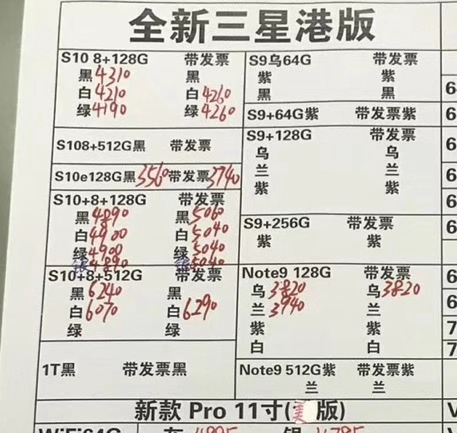 全新三星港版
S10 8+128G 带发票
黑4310 黑
白4210 白4260
绿4190 绿4260
S108+512G黑 带发票
S10e128G黑3560带发票3740
S10+8+128G 带发票
黑4890 黑5060
白4900 白5040
绿4900 绿5040
4890 5040
S10+8+512G 带发票
黑6240 黑
白6070 白6290
绿 绿
1T黑 带发票黑
S9乌64G 带发票
紫 紫
黑 黑
S9+64G紫 带发票紫
S9+128G 带发票
乌 乌
兰 兰
紫 紫
S9+256G 带发票
紫 紫
Note9 128G 带发票
乌3820 乌3820
兰3940 兰
紫 紫
白 白
Note9 512G紫 带发票紫
兰 兰
6
6
6
6
6
6
6
6
7
7
新款 Pro 11寸(美版)